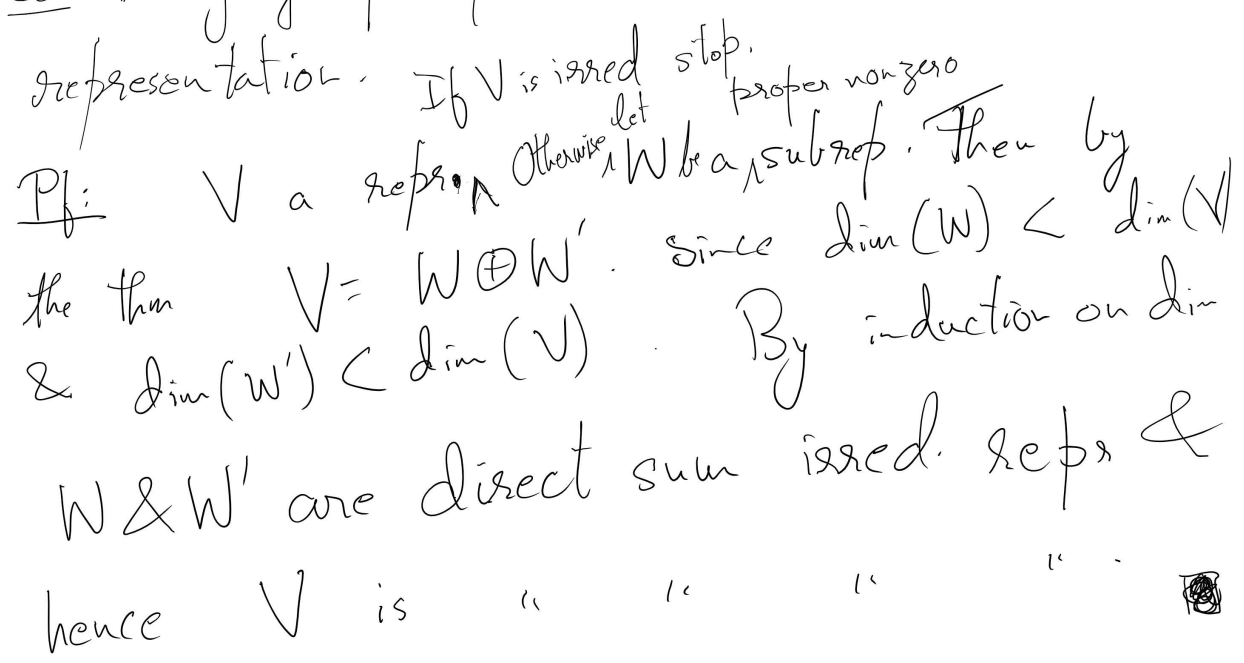 representation. If V is irred stop.
Pf: V a repr. Otherwise let W be a proper nonzero subrep. Then by
the thm V = W ⊕ W'. since dim(W) < dim(V)
& dim(W') < dim(V). By induction on dim
W & W' are direct sum irred. repr &
hence V is " " " " .